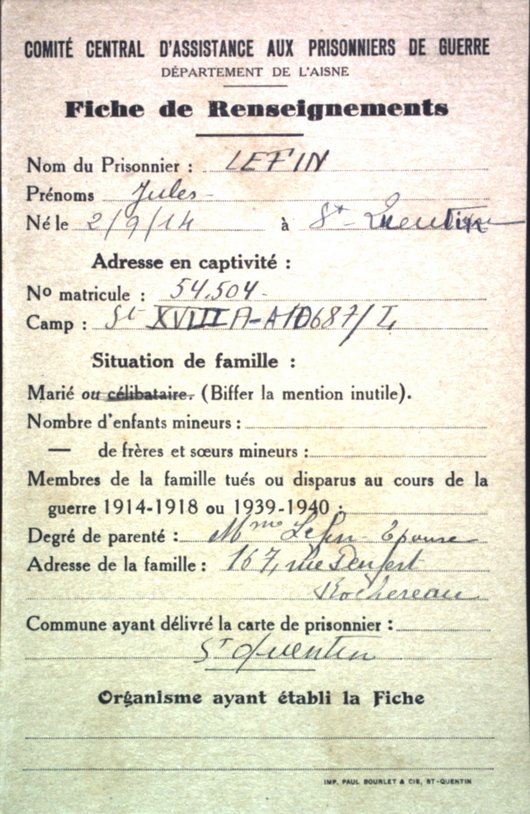 COMITÉ CENTRAL D'ASSISTANCE AUX PRISONNIERS DE GUERRE
DÉPARTEMENT DE L'AISNE
Fiche de Renseignements
Nom du Prisonnier : LEFIN
Prénoms Jules
Né le 2/9/14 à St-Quentin
Adresse en captivité :
No matricule : 54.504
Camp : St XVIII A-A/D687/L
Situation de famille :
Marié ou célibataire. (Biffer la mention inutile).
Nombre d'enfants mineurs :
— de frères et sœurs mineurs :
Membres de la famille tués ou disparus au cours de la
guerre 1914-1918 ou 1939-1940 :
Degré de parenté : Mme Lefin Epouse
Adresse de la famille : 167, rue Denfert
Rochereau
Commune ayant délivré la carte de prisonnier :
St Quentin
Organisme ayant établi la Fiche
IMP. PAUL BOURLET & CIE, ST-QUENTIN